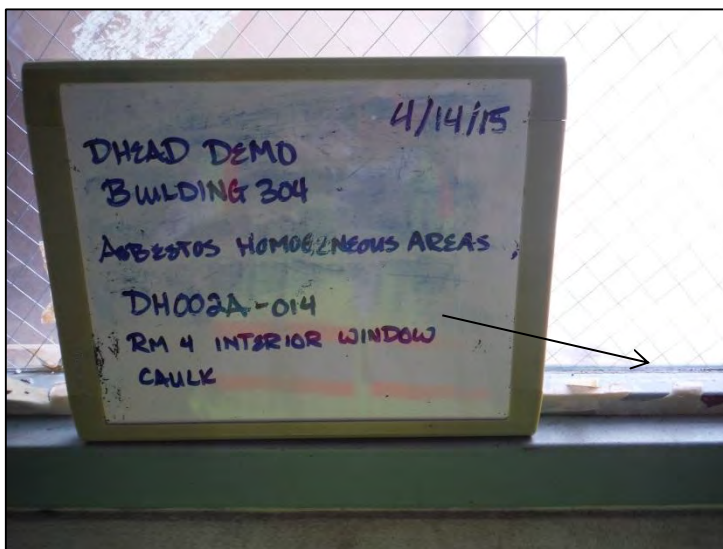 4/14/15
DHEAD DEMO
BUILDING 304
ASBESTOS HOMOGENEOUS AREAS
DH002A-014
RM 4 INTERIOR WINDOW
CAULK